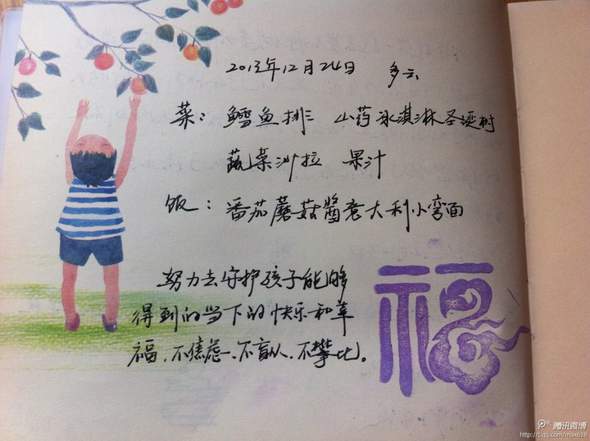 2013年12月24日 多云
菜：鳕鱼排 山药冰淇淋圣诞树
蔬菜沙拉 果汁
饭：番茄蘑菇酱意大利小弯面
努力去守护孩子能够
得到的当下的快乐和幸
福，不焦虑、不盲从、不攀比。
福
腾讯微博